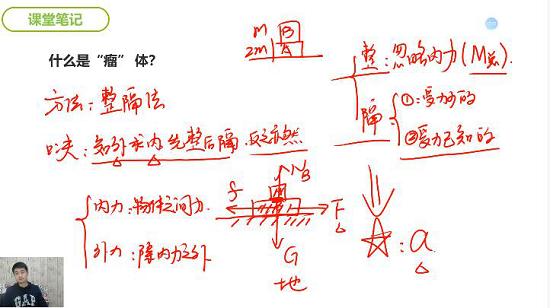 课堂笔记
什么是“瘤”体？
m B
2m A
整：忽略内力（M总）.
隔
①：受力少的
②受力已知的
方法：整隔法
口诀：知外求内先整后隔.反之亦然
内力：物体之间力.
外力：除内力之外
f
N
B
F
G
地
：a
GAP